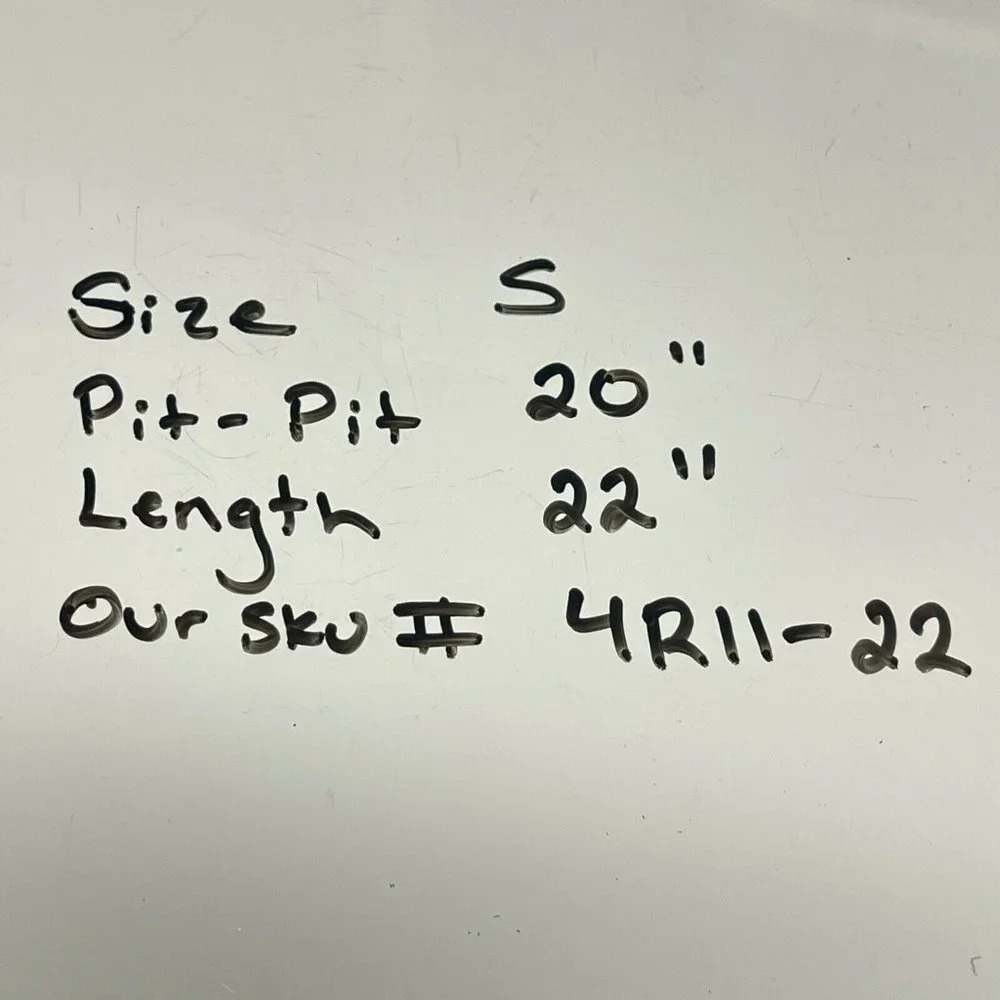 Size S
Pit-Pit 20"
Length 22"
Our Sku # 4R11-22